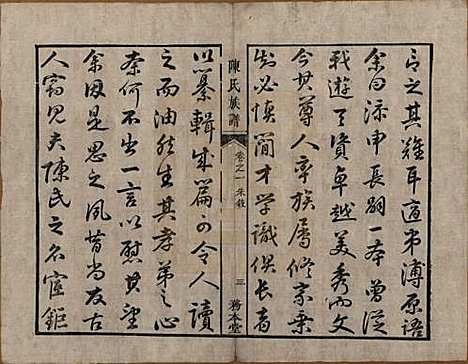 言之其難耳適弟溥原語
余曰添申長嗣一本曾從
戰遊天資卓越美秀而文
今其尊人率族屬修宗乘
知必慎簡才学識俱長者
陳氏族譜
卷之一 朱敘
三 務本堂
以纂輯成篇可令人讀
之而油然生其孝弟之心
奈何不出一言以慰其望
余因是思之夙昔尚友古
人竊見夫陳氏之名宦鉅